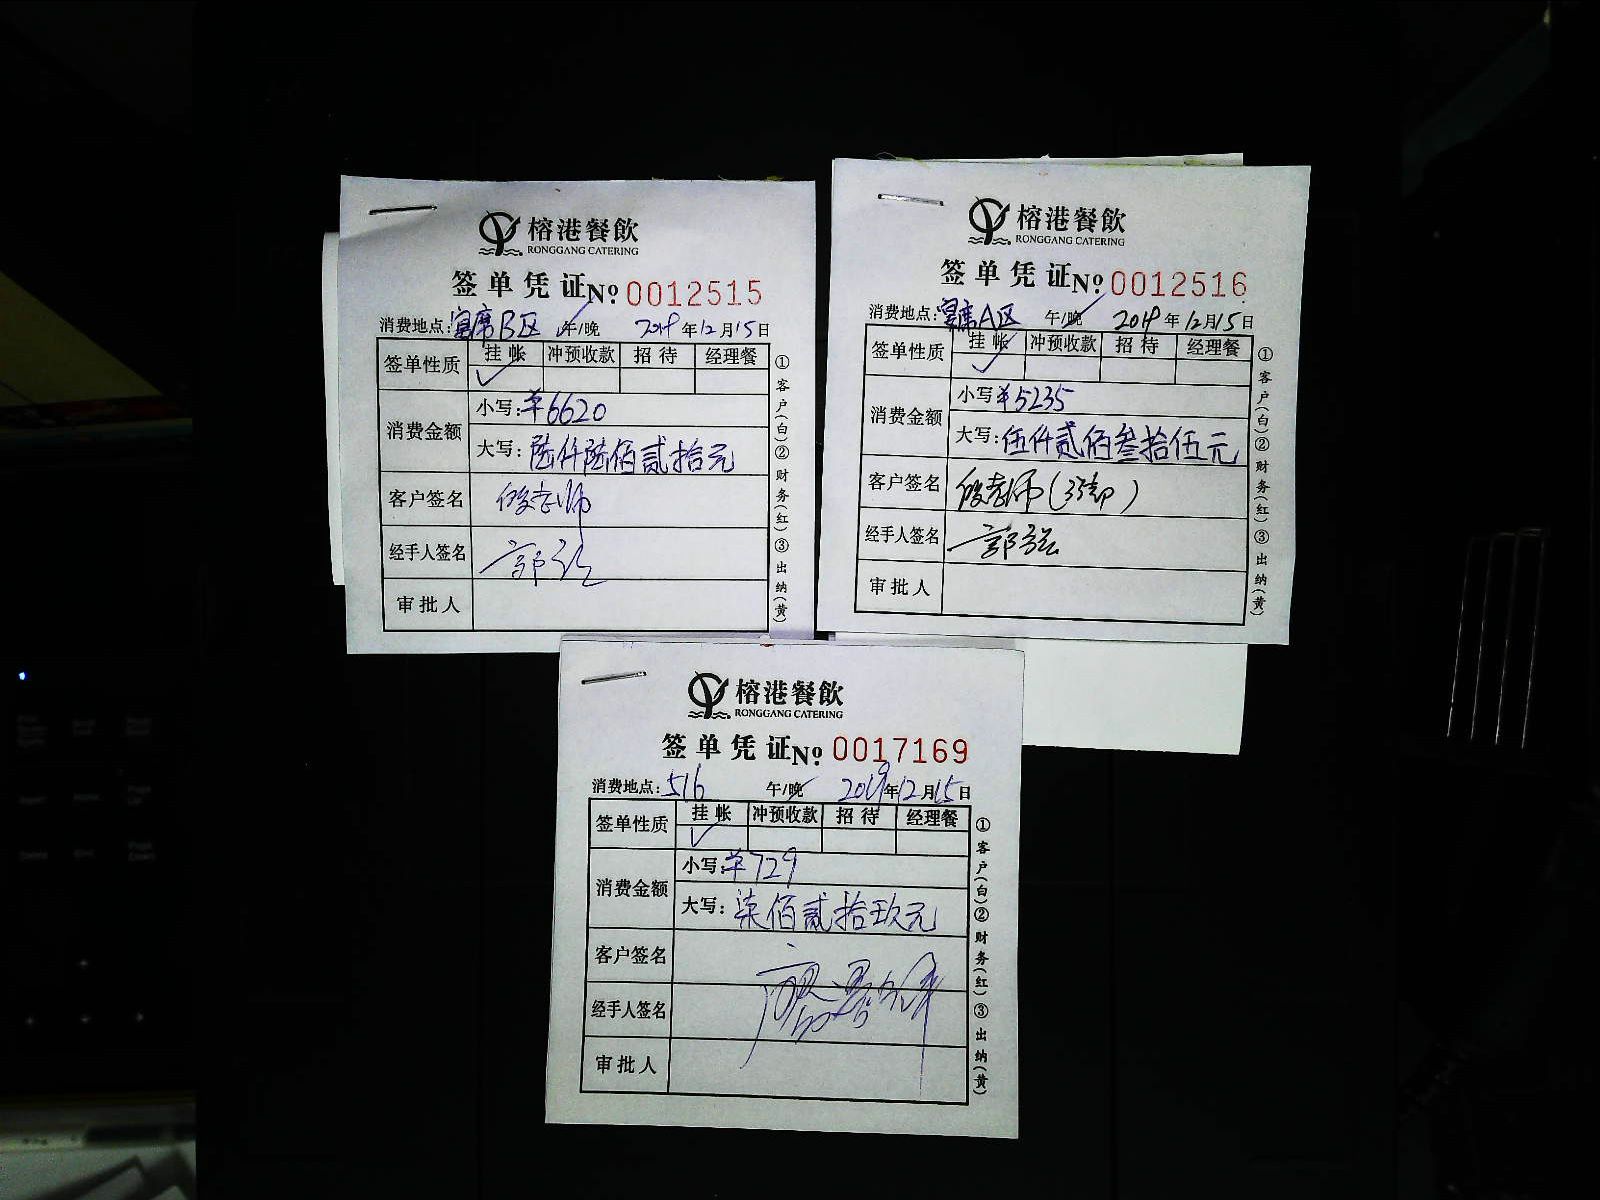 榕港餐飲
RONGGANG CATERING
签单凭证 № 0012515
消费地点: 宴席B区 午/晚 2019年12月15日
签单性质 挂帐 冲预收款 招待 经理餐
消费金额 小写: ¥6620
大写: 陆仟陆佰贰拾元
客户签名 老师
经手人签名 郭
审批人
①客户(白)②财务(红)③出纳(黄)
榕港餐飲
RONGGANG CATERING
签单凭证 № 0012516
消费地点: 宴席A区 午/晚 2019年12月15日
签单性质 挂帐 冲预收款 招待 经理餐
消费金额 小写: ¥5235
大写: 伍仟贰佰叁拾伍元
客户签名 老师
经手人签名 郭
审批人
①客户(白)②财务(红)③出纳(黄)
榕港餐飲
RONGGANG CATERING
签单凭证 № 0017169
消费地点: 516 午/晚 2019年12月15日
签单性质 挂帐 冲预收款 招待 经理餐
消费金额 小写: ¥729
大写: 柒佰贰拾玖元
客户签名
经手人签名
审批人
①客户(白)②财务(红)③出纳(黄)